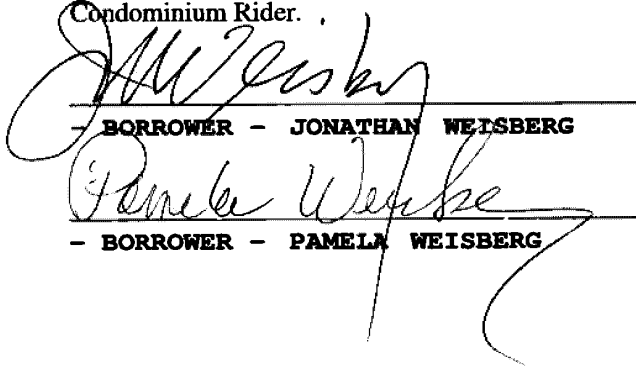 Condominium Rider.
- BORROWER - JONATHAN WEISBERG
Pamela Weisberg
- BORROWER - PAMELA WEISBERG